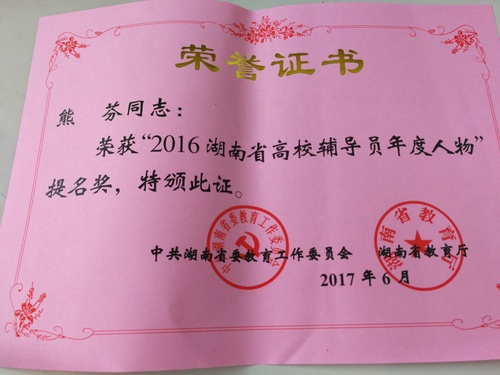 荣誉证书
熊 芬同志：
荣获“2016湖南省高校辅导员年度人物”
提名奖，特颁此证。
中共湖南省委教育工作委员会 湖南省教育厅
2017年6月
中共湖南省委教育工作委员会
湖南省教育厅